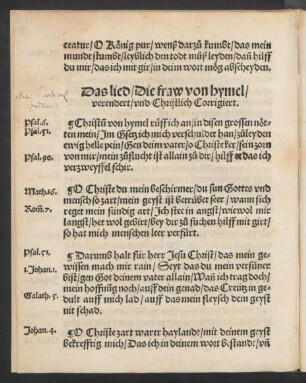 ceatur/O König pur/wenß darzů kumbt/das mein
mundt stumbt/leyblich den todt můß leyden/dañ hilff
du mir/das ich mit gir/in deim wort mög abscheyden.
Das lied/Die fraw von hymel/
verendert/vnd Christlich Corrigiert.
Psal.6. Christū von hymel rüff ich an/in disen grossen nö-
Psal.51. ten mein/Im Gsetz ich mich verschulder han/zů leyden
ewig helle pein/Gen deim vater/o Christe ker/sein zorn
Psal.90. von mir/mein zůflucht ist allain zů dir/hilff ee das ich
verzweyffel schir.
Math.16. O Christe du mein beschirmer/du sun Gottes vnd
mensch so zart/mein geyst ist betrübet seer/wann sich
Rom.7. reget mein sündig art/Ich stee in angst/wiewol mir
langst/het wol gebirt/bey dir zů suchen hilff mit girt/
so hat mich menschen leer verfürt.
Psal.51. Darumb halt für herr Jesu Christ/das mein ge-
wissen mach mir rain/Seyt das du mein versüner
1.Johan.1. bist/gen Got deinem vater allain/Wañ ich trag doch/
mein hoffnūg noch/auff dein genad/das Creütz in ge-
Galath.5. dult auff mich lad/auff das mein fleysch dem geyst
nit schad.
Johan.4. O Christe zart warer hayland/mit deinem geyst
bekrefftig mich/Das ich in deinem wort bestand/vñ